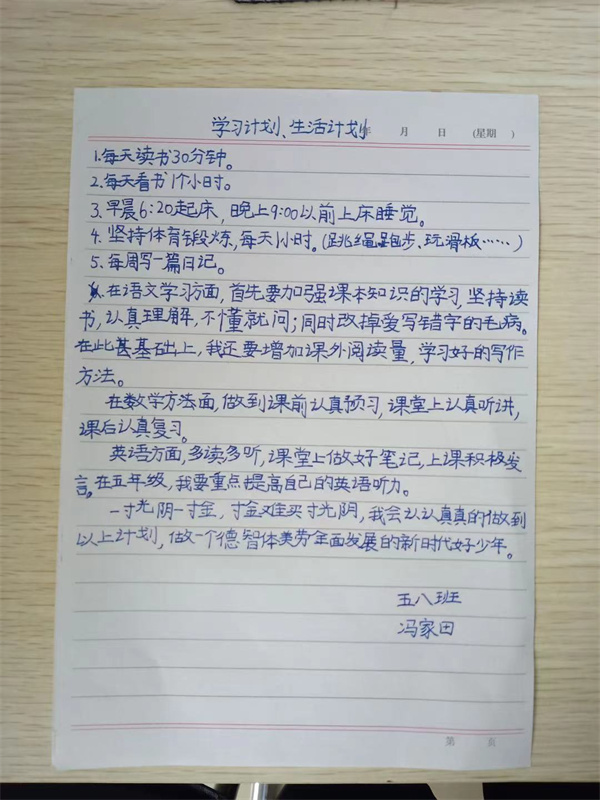 学习计划、生活计划
年 月 日 (星期 )
1.每天读书30分钟。
2.每天看书1个小时。
3.早晨6:20起床，晚上9:00以前上床睡觉。
4.坚持体育锻炼，每天1小时。(跳绳、跑步、玩滑板……)
5.每周写一篇日记。
在语文学习方面，首先要加强课本知识的学习，坚持读
书，认真理解，不懂就问；同时改掉爱写错字的毛病。
在此基础上，我还要增加课外阅读量，学习好的写作
方法。
在数学方法面，做到课前认真预习，课堂上认真听讲，
课后认真复习。
英语方面，多读多听，课堂上做好笔记，上课积极发
言。在五年级，我要重点提高自己的英语听力。
一寸光阴一寸金，寸金难买寸光阴，我会认认真真的做到
以上计划，做一个德智体美劳全面发展的新时代好少年。
五八班
冯家田
第 页